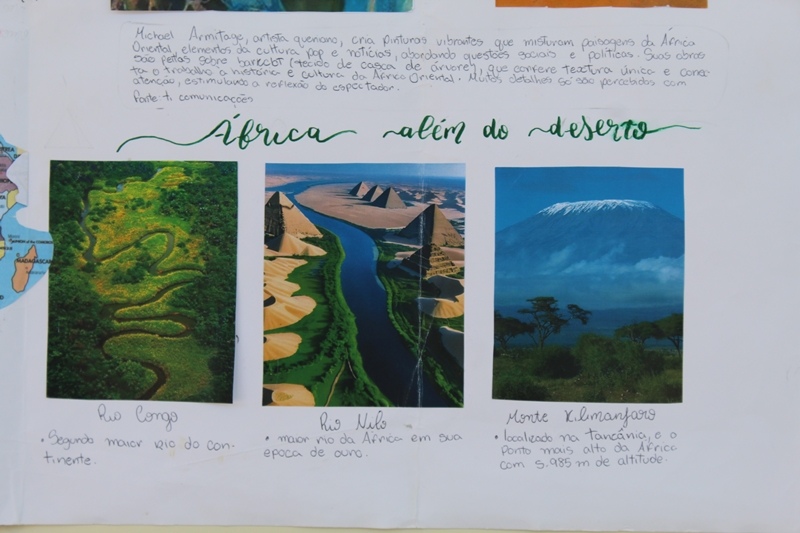 Michael Armitage, artista queniano, cria pinturas vibrantes que misturam paisagens da África
Oriental, elementos da cultura pop e notícias, abordando questões sociais e políticas. Suas obras
são feitas sobre barkclot (tecido de casca de árvore), que confere textura única e conec-
ta o trabalho à história e cultura da África Oriental. Muitos detalhes só são percebidos com
atenção, estimulando a reflexão do espectador.
Fonte: t. comunicações
África além do deserto
MADAGASCAR
Rio Congo
• Segundo maior rio do con-
tinente.
Rio Nilo
• maior rio da África em sua
epoca de ouro.
Monte Kilimanjaro
• localizado na Tanzânia, e o
ponto mais alto da África
com 5.985 m de altitude.